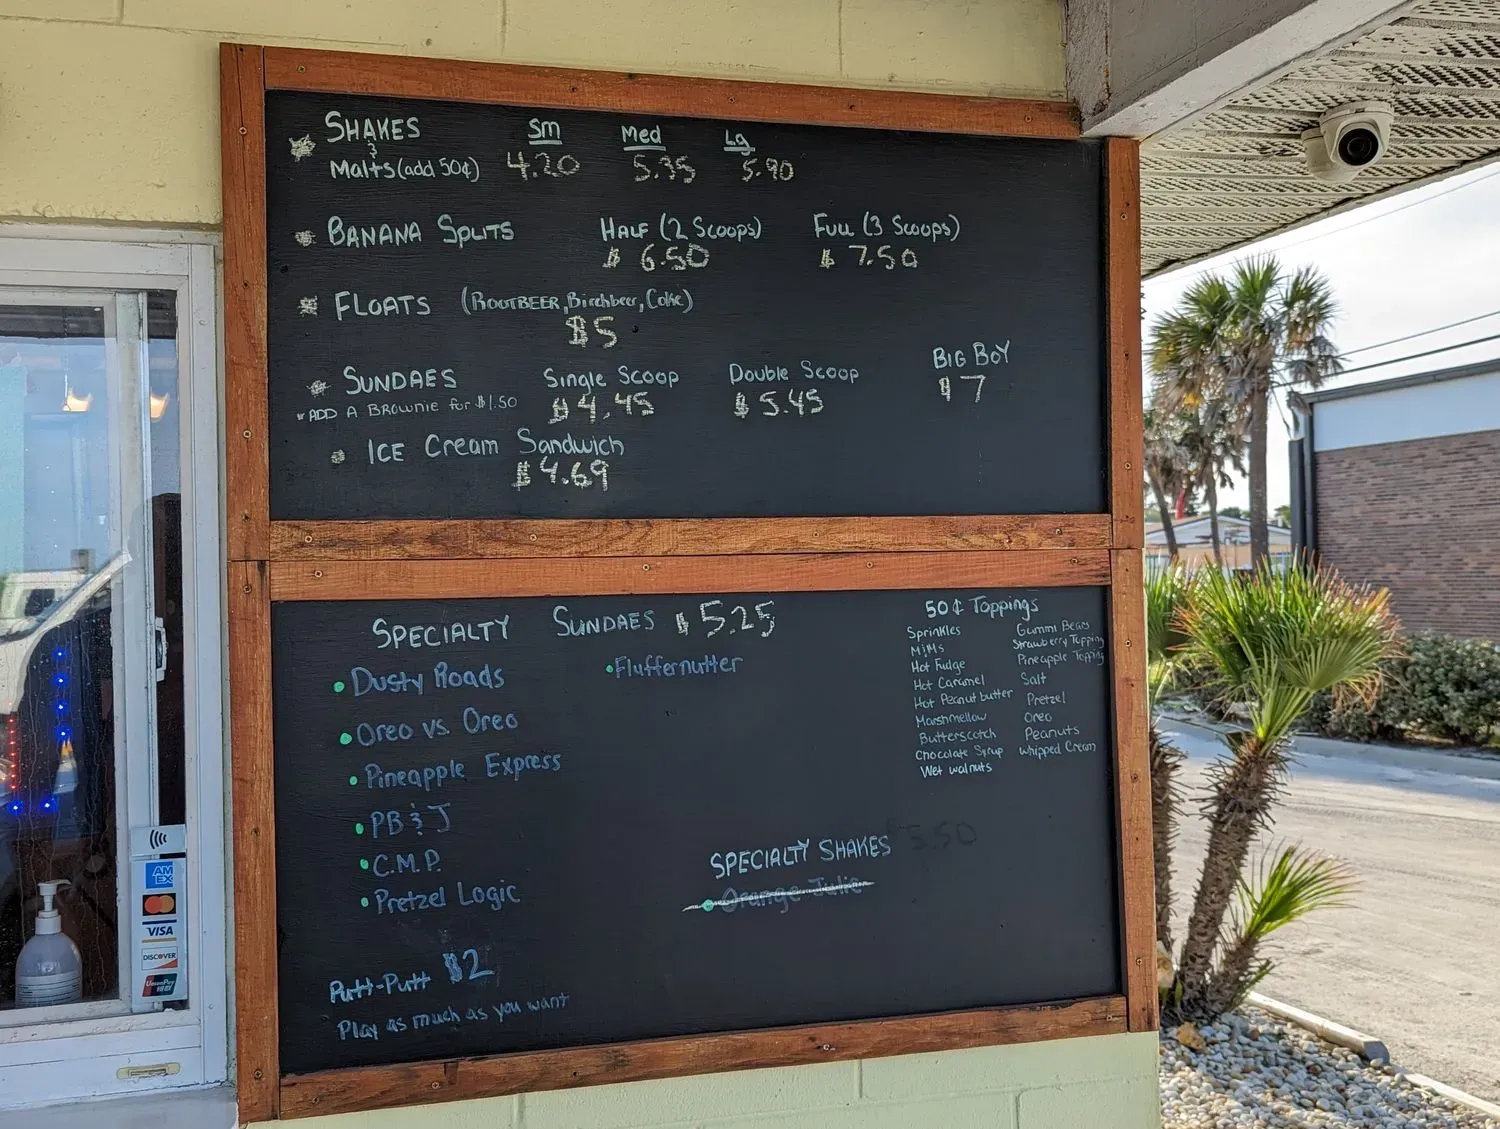 SHAKES Sm Med Lg
&
Malts (add 50¢) 4.20 5.35 5.90
BANANA SPLITS HALF (2 Scoops) FULL (3 Scoops)
$ 6.50 $ 7.50
FLOATS (ROOTBEER, Birchbeer, Coke)
$5
SUNDAES Single Scoop Double Scoop BIG BOY
* ADD A Brownie for $1.50 $4.45 $5.45 $7
ICE Cream Sandwich
$4.69
SPECIALTY SUNDAES $5.25
• Dusty Roads
• Fluffernutter
• Oreo vs. Oreo
• Pineapple Express
• PB & J
• C.M.P.
• Pretzel Logic
50¢ Toppings
Sprinkles
M&Ms
Hot Fudge
Hot Caramel
Hot Peanut butter
Marshmellow
Butterscotch
Chocolate Syrup
Wet walnuts
Gummi Bears
Strawberry Topping
Pineapple Topping
Salt
Pretzel
Oreo
Peanuts
Whipped Cream
SPECIALTY SHAKES 5.50
• Orange Julie
Putt-Putt $2
Play as much as you want
AM
EX
VISA
DISCOVER
UnionPay
银联